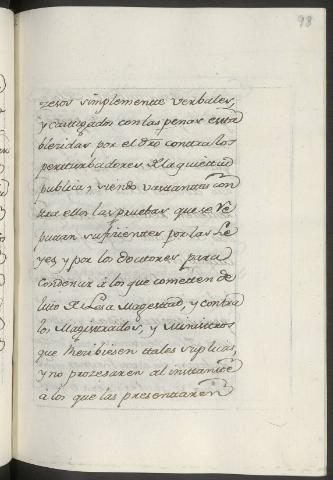 98
zesos simplemente verbales,
y castigados con las penas esta
blecidas por el dro contra los
perturbadores de la quietud
publica, siendo vastantes con
tra ellos las pruebas que se re
putan suficientes por las Le
yes, y por los doctores para
condenar à los que cometen de
lito de Lesa Magestad, y contra
los Magistrados, y Ministros
que recibiesen tales suplicas,
y no prozesaren al instante
à los que las presentaren